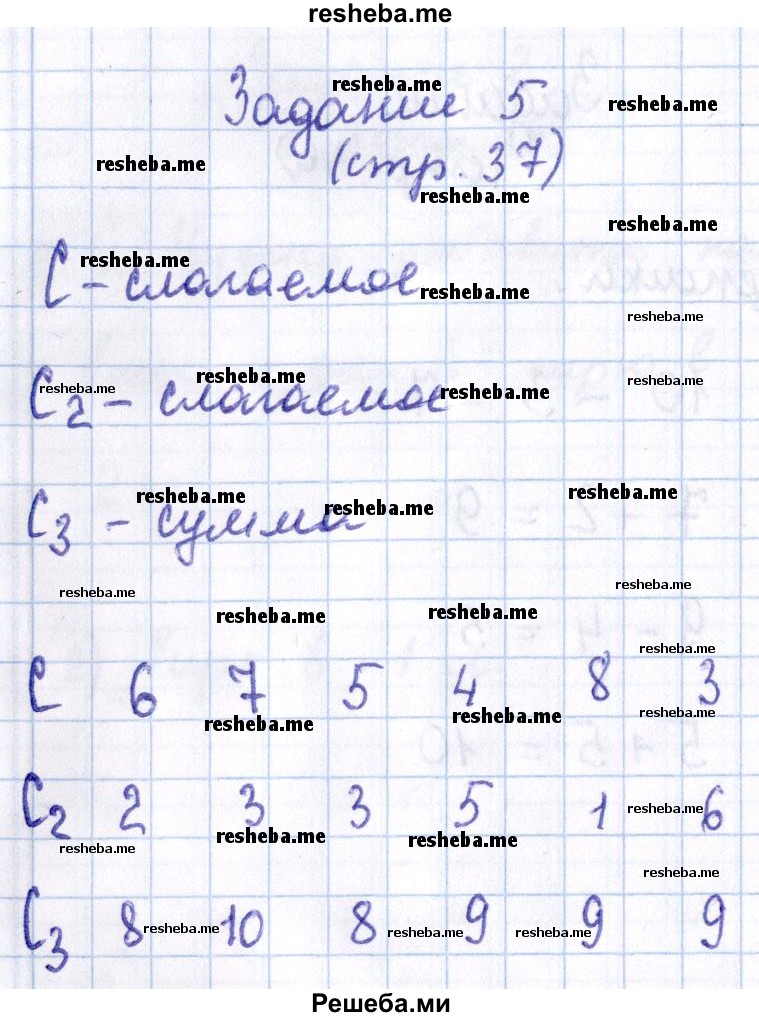 resheba.me
Задание 5
resheba.me
resheba.me
(стр. 37)
resheba.me
resheba.me
resheba.me
resheba.me
С - слагаемое
resheba.me
resheba.me
resheba.me
resheba.me
resheba.me
С2 - слагаемое
resheba.me
resheba.me
resheba.me
resheba.me
С3 - сумма
resheba.me
resheba.me
resheba.me
resheba.me
resheba.me
С 6 7 5 4 8 3
resheba.me
resheba.me
resheba.me
С2 2 3 3 5 1 6
resheba.me
resheba.me
resheba.me
resheba.me
resheba.me
С3 8 10 8 9 9 9
resheba.me
resheba.me
resheba.me
Решеба.ми